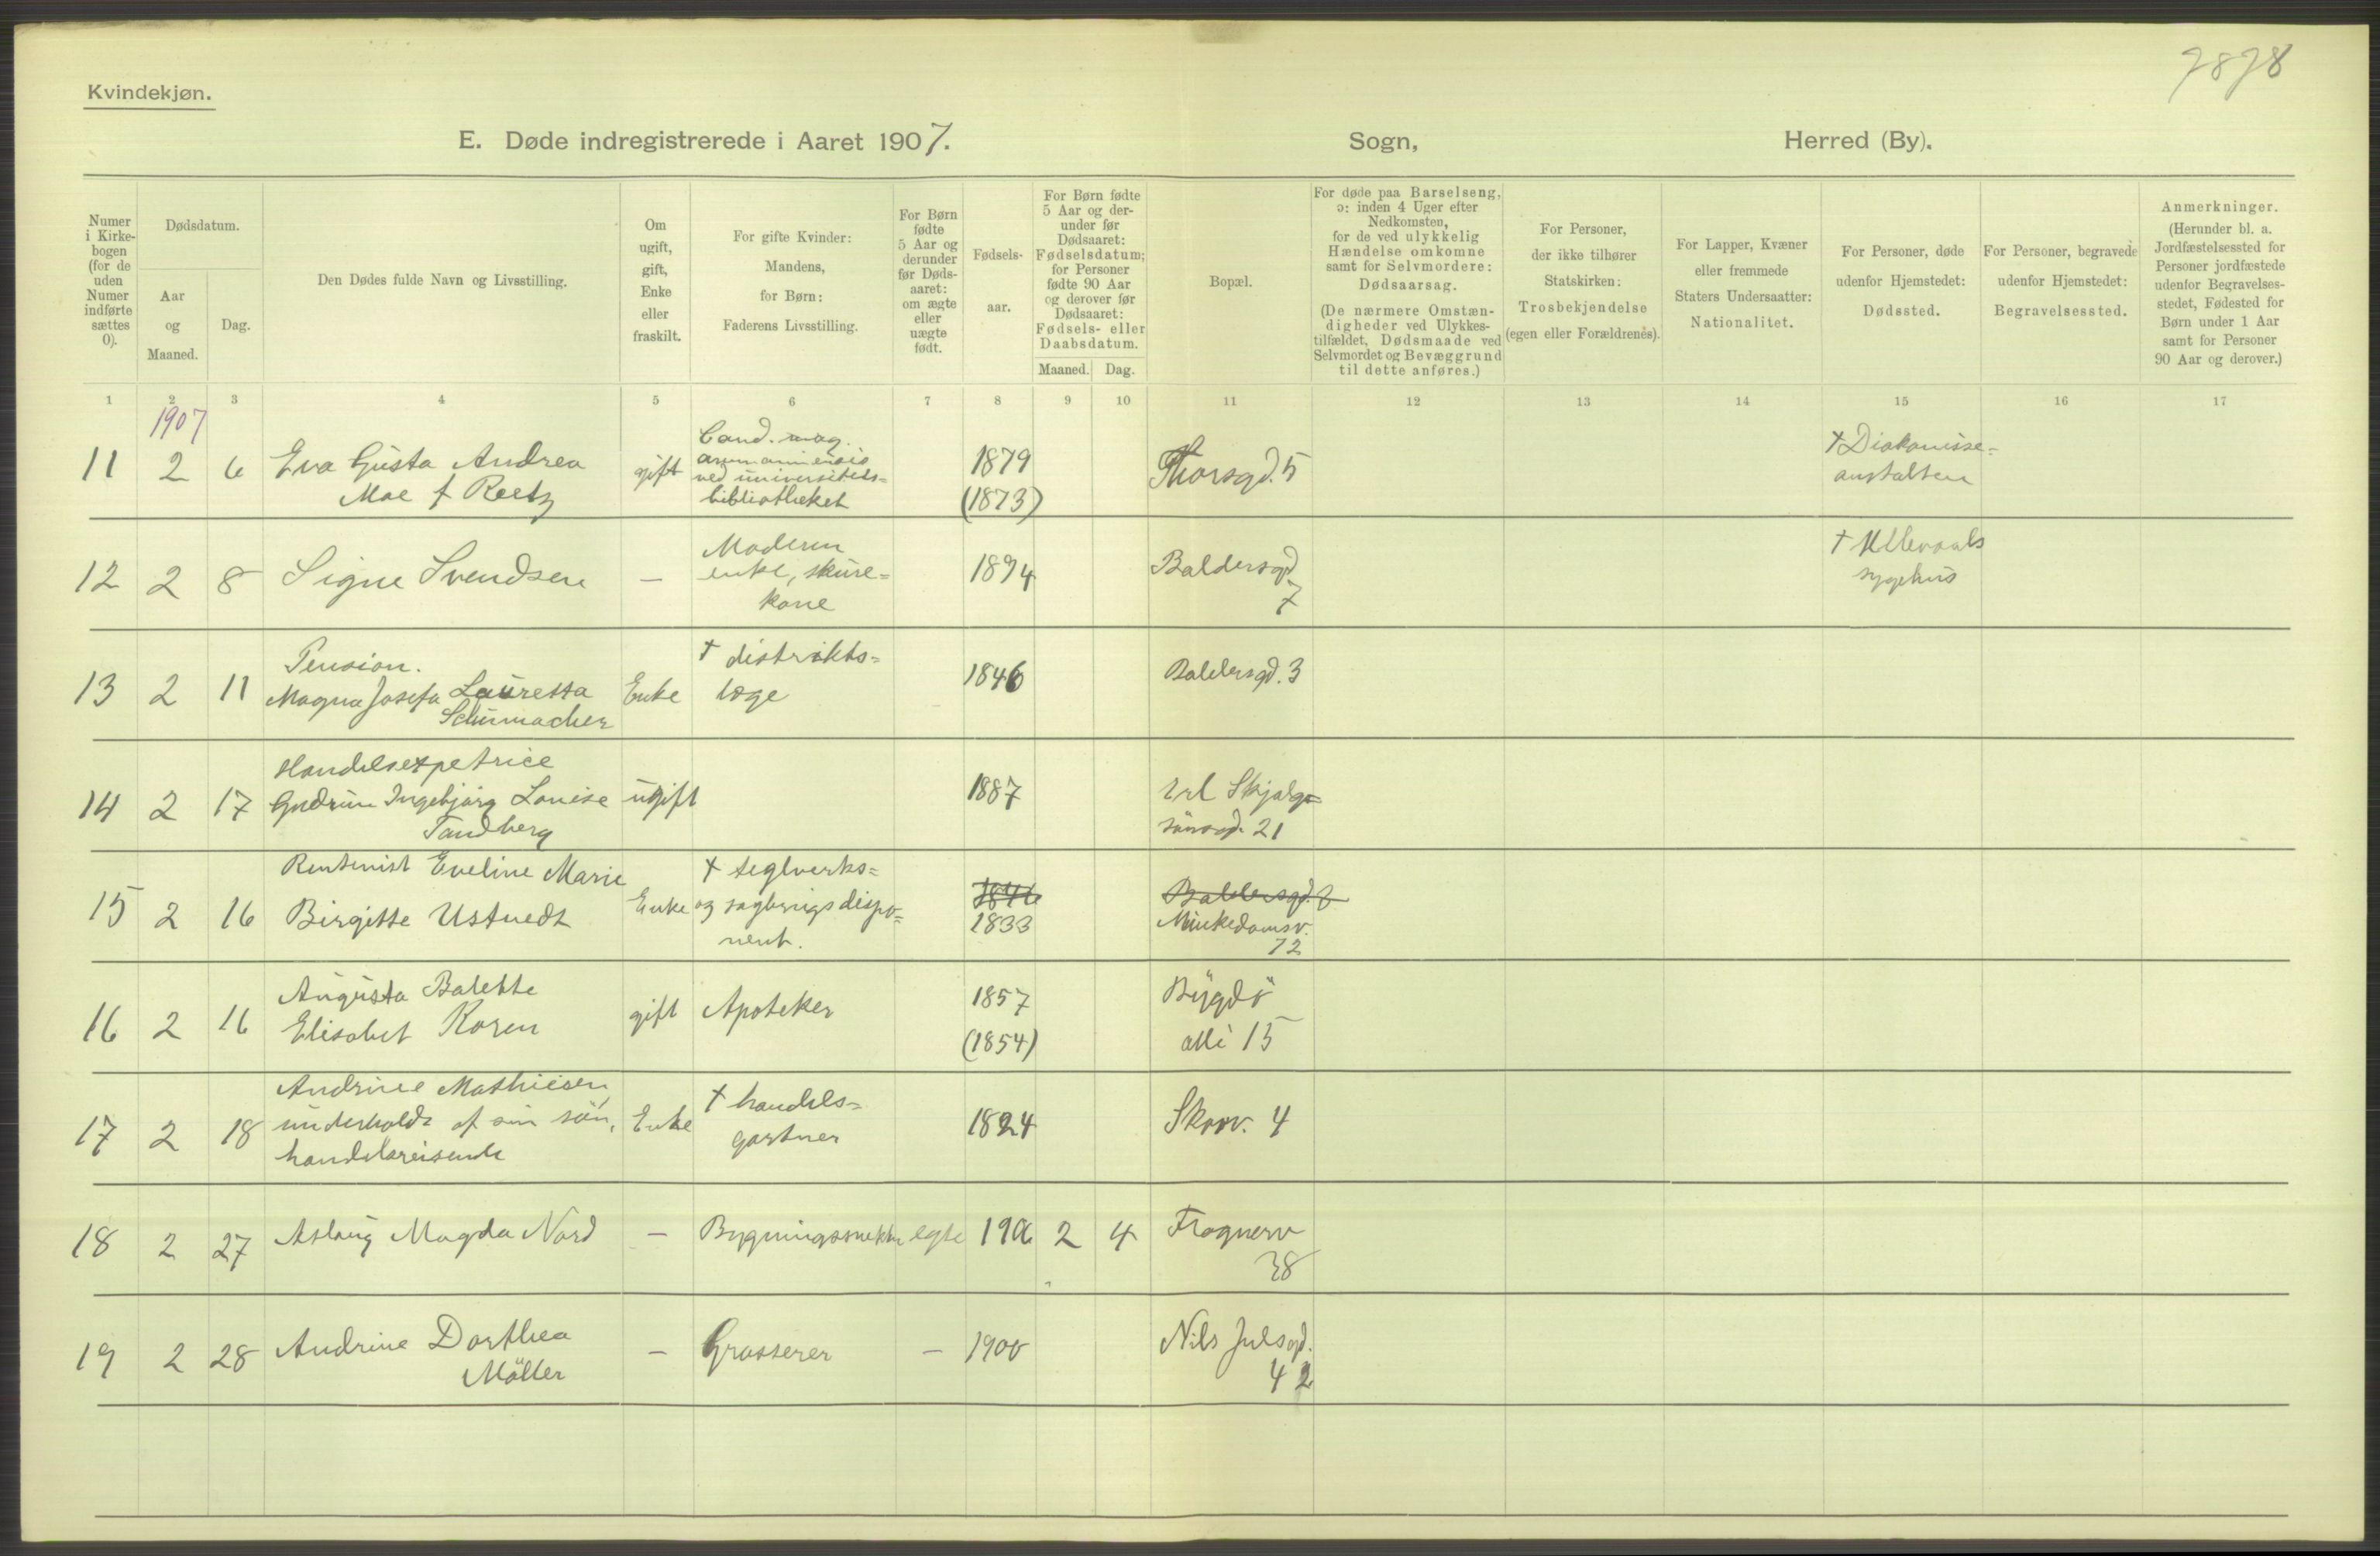 7878
Kvindekjøn.
E. Døde indregistrerede i Aaret 1907. Sogn, Herred (By).
Numer i Kirkebogen (for de uden Numer indførte sættes 0).
Dødsdatum.
Aar og Maaned.
Dag.
Den Dødes fulde Navn og Livsstilling.
Om ugift, gift, Enke eller fraskilt.
For gifte Kvinder: Mandens, for Børn: Faderens Livsstilling.
For Børn fødte 5 Aar og derunder før Dødsaaret: om ægte eller uægte født.
Fødselsaar.
For Børn fødte 5 Aar og derunder før Dødsaaret: Fødselsdatum; for Personer fødte 90 Aar og derover før Dødsaaret: Fødsels- eller Daabsdatum.
Maaned. Dag.
Bopæl.
For døde paa Barselseng, ɔ: inden 4 Uger efter Nedkomsten, for de ved ulykkelig Hændelse omkomne samt for Selvmordere: Dødsaarsag.
(De nærmere Omstændigheder ved Ulykkestilfældet, Dødsmaade ved Selvmordet og Bevæggrund til dette anføres.)
For Personer, der ikke tilhører Statskirken: Trosbekjendelse (egen eller Forældrenes).
For Lapper, Kvæner eller fremmede Staters Undersaatter: Nationalitet.
For Personer, døde udenfor Hjemstedet: Dødssted.
For Personer, begravede udenfor Hjemstedet: Begravelsessted.
Anmerkninger. (Herunder bl. a. Jordfæstelsessted for Personer jordfæstede udenfor Begravelsesstedet, Fødested for Børn under 1 Aar samt for Personer 90 Aar og derover.)
1 2 3 4 5 6 7 8 9 10 11 12 13 14 15 16 17
1907
11 2 6 Eva Gusta Andrea
Moe f Reetz
gift
Cand. mag.
ved universitets=
bibliotheket
1879
(1873)
Thorsgd. 5
† Diakonisse-
anstalten
12 2 8 Signe Svendsen —
Moderen
enke, skure=
kone
1894
Baldersgd
7
† Ullevaals
sygehus
13 2 11 Pension.
Magna Josefa Lauretta
Schumacher
Enke
† distrikts=
læge
1846
Baldersgd. 3
14 2 17 Handelsexpetrice
Gudrun Ingebjørg Louise
Tandberg
ugift
1887
Erl Skjalgs=
sönsgd. 21
15 2 16 Rentenist Eveline Marie
Birgitte Ustvedt
Enke
† teglverks=
og sagbrugs dispo=
nent.
1833
Baldersgd.
Munkedamsv.
72
16 2 16 Augusta Balette
Elisabet Koren
gift Apoteker
1857
(1854)
Bygdö
alle 15
17 2 18 Andrine Mathiesen,
underholdt af sin sön,
handelsreisende
Enke
† handels=
gartner
1824
Skovv. 4
18 2 27 Aslaug Magda Nord — Bygningssnekker egte 1906 2 4
Frognerv
38
19 2 28 Andrine Dorthea
Möller
— Grosserer — 1900
Nils Julsgd.
42